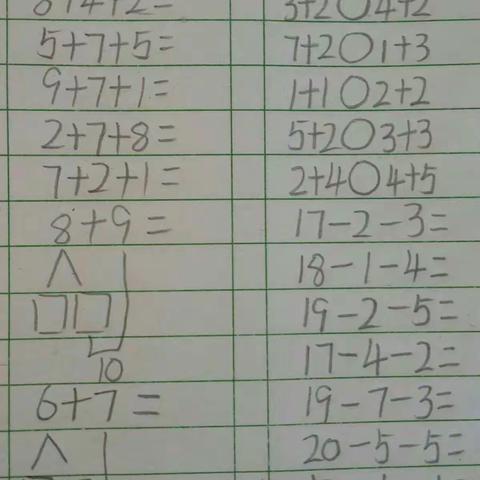 5+7+5=
9+7+1=
2+7+8=
7+2+1=
8+9=
10
6+7=
3+2○4+2
7+2○1+3
1+1○2+2
5+2○3+3
2+4○4+5
17-2-3=
18-1-4=
19-2-5=
17-4-2=
19-7-3=
20-5-5=